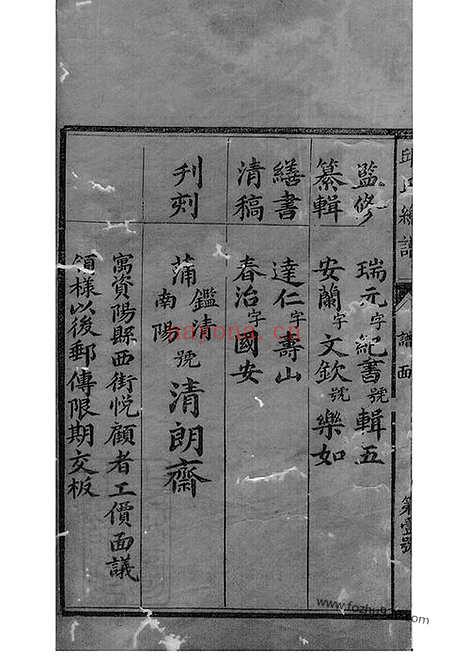 邱氏總譜
譜面
第壹號
監修 瑞元字紀書號輯五
纂輯 安蘭字文欽號樂如
繕書 達仁字壽山
清稿 春治字國安
刋刻 蒲南鑑清陽號清朗齋
寓資陽縣西街悅顧者工價面議
領樣以後郵傳限期交板
hayona.cn
www.fozhu920.com